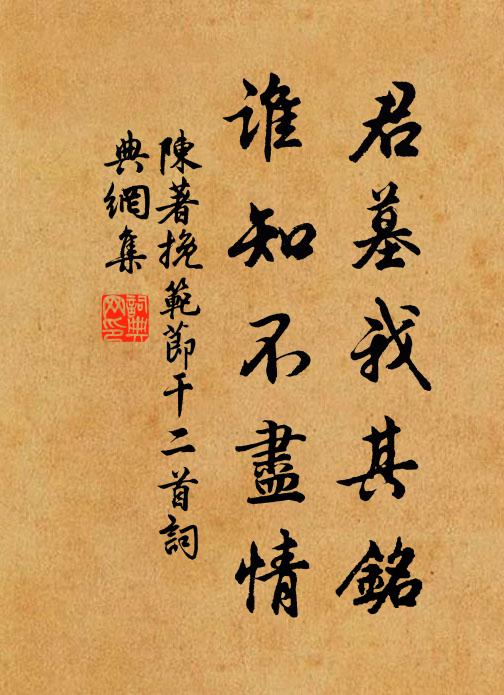 君墓我其銘
誰知不盡情
陳著挽範節干二首詞
典網集
詞典網印